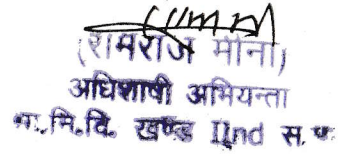 (रामराज मीना)
अधिशाषी अभियन्ता
सा.नि.वि. खण्ड IInd स. मा